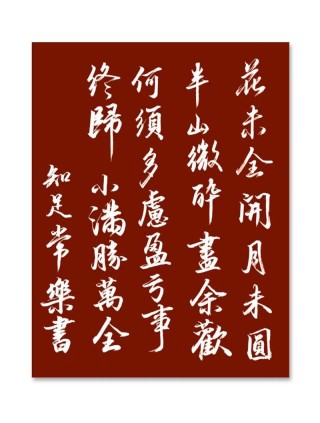 花未全開月未圓
半山微醉盡余歡
何須多慮盈亏事
終歸小滿勝萬全
知足常樂書